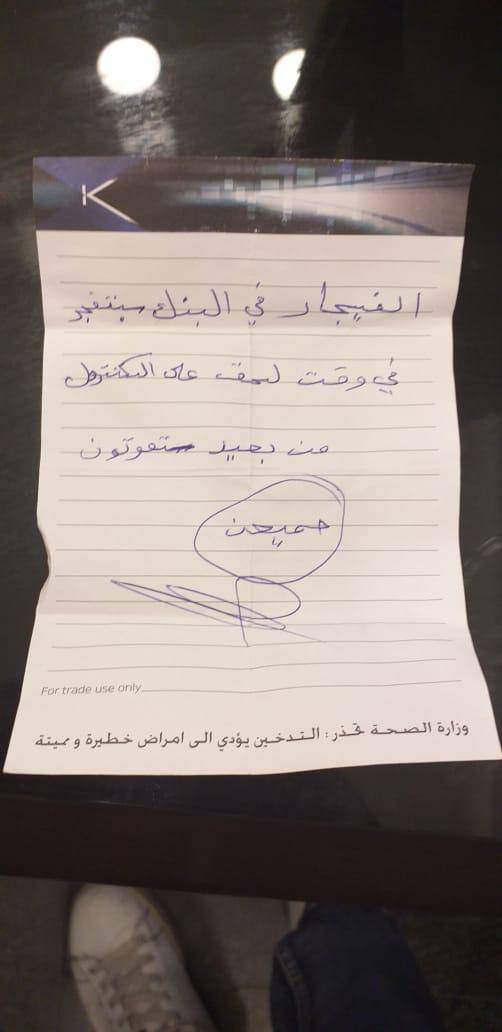 K
الفيجار في البنك ستنفجر
في وقت لحق على الكنترول
من بعيد ستموتون
جميعن
For trade use only
وزارة الصحة تحذر : التدخين يؤدي الى امراض خطيرة و مميتة